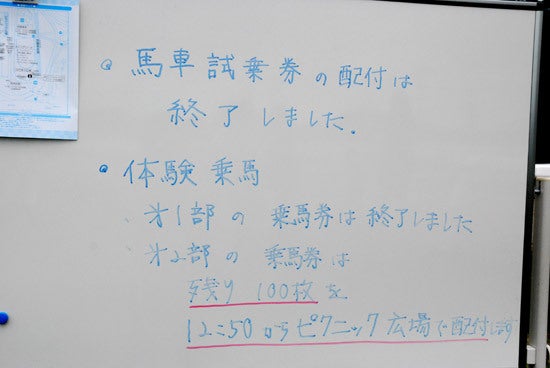 • 馬車試乗券の配付は
終了しました.
• 体験乗馬
、才1部の 乗馬券は終了しました
、才2部の 乗馬券は
残り 100枚を
12:50からピクニック広場で配付します